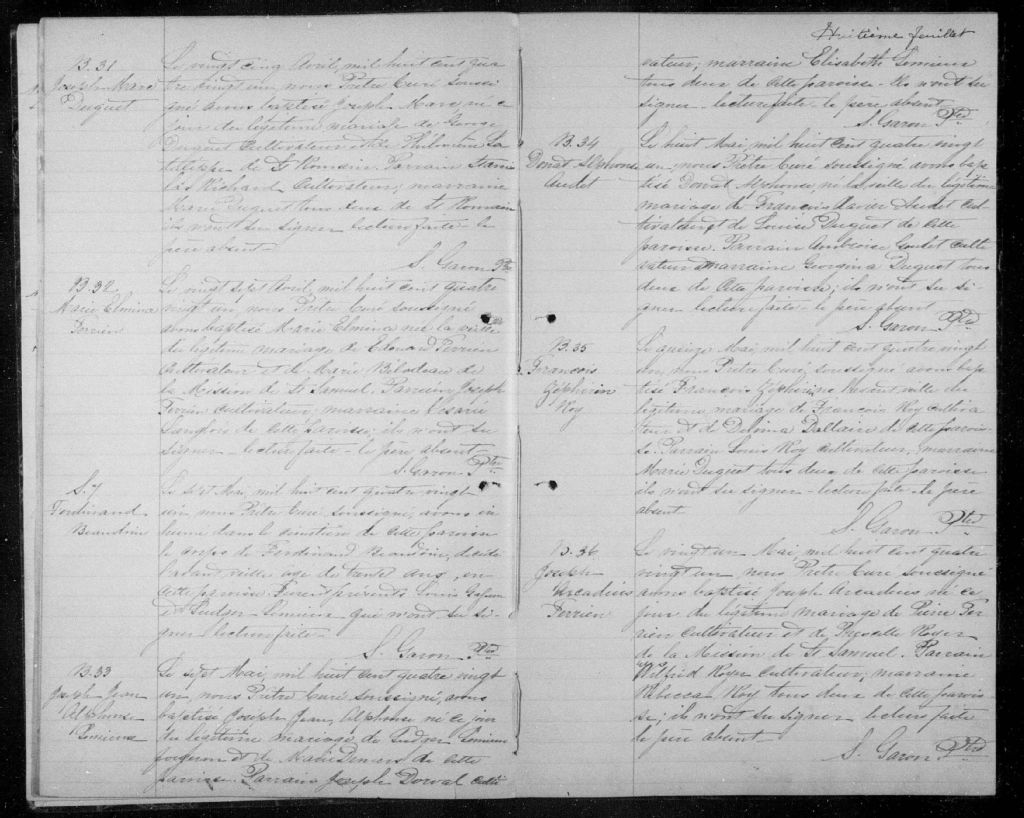 B. 31
Joseph Marc
Duguet
Le vingt cinq Avril, mil huit cent qua
tre vingt un, nous Prêtre Curé Soussi
gné avons baptisé Joseph Marc, né ce
jour du légitime mariage de George
Duguet Cultivateur et de Philomène La
de St Romain. Parrain Stanis
las Richard Cultivateur; marraine
Marie Duguet tous deux de St Romain
ils n'ont su signer lecture faite - le
père absent -
S. Garon Ptre
B. 32
Marie Elmina
Perrien
Le vingt sept Avril, mil huit cent quatre
vingt un, nous Prêtre Curé soussigné
avons baptisé Marie Elmina née la veille
du légitime mariage de Edouard Perrien
Cultivateur et de Marie Bilodeau de
la Mission de St Samuel. Parrain Joseph
Perrien cultivateur; marraine Césarie
Langlois de cette paroisse; ils n'ont su
signer - lecture faite - le père absent -
S. Garon Ptre
S. 7
Ferdinand
Beaudoin
Le sept Mai, mil huit cent quatre vingt
un nous Prêtre Curé, soussigné, avons in
humé dans le cimetière de cette paroisse
le corps de Ferdinand Beaudoin, décédé
l'avant veille âgé de trente ans, en
cette paroisse. Furent présents Louis
Ludger Lemieux qui n'ont su si-
gner lecture faite -
S. Garon Ptre
B. 33
Joseph Jean
Alphonse
Lemieux
Le sept Mai, mil huit cent quatre vingt
un nous Prêtre Curé soussigné, avons
baptisé Joseph Jean, Alphonse né ce jour
du légitime mariage de Ludger Lemieux
forgeron et de Marie Demers de cette
paroisse. Parrain Joseph Dorval culti
Huitième feuillet
vateur; marraine Elisabeth Lemieux
tous deux de cette paroisse - ils n'ont su
signer - lecture faite - le père absent -
S. Garon Ptre
B. 34
Donat Alphonse
Audet
Le huit Mai, mil huit cent quatre vingt
un, nous Prêtre Curé soussigné avons bap
tisé Donat Alphonse, né la veille du légitime
mariage de François Xavier Audet cul-
tivateur et de Louise Duguet de cette
paroisse. Parrain Ambroise Audet culti
vateur marraine Georgina Duguet tous
deux de cette paroisse; ils n'ont su si-
gner lecture faite - le père absent
S. Garon Ptre
B. 35
François
Zéphirin
Roy
Le quinze Mai, mil huit cent quatre vingt
un, nous Prêtre Curé, soussigné avons bap
tisé François Zéphirin, né avant veille du
légitime mariage de François Roy cultiva
teur et de Delvina Dallaire de cette parois-
se. Parrain Louis Roy cultivateur, marraine
Marie Duguet tous deux de cette paroisse
ils n'ont su signer - lecture faite - le père
absent -
S. Garon Ptre
B. 36
Joseph
Arcadius
Perrien
Le vingt un Mai, mil huit cent quatre
vingt un nous Prêtre Curé soussigné
avons baptisé Joseph Arcadius né ce
jour du légitime mariage de Pierre Per
rien cultivateur et de Roger
de la Mission de St Samuel. Parrain
Wilfrid Roger Cultivateur; marraine
Rébecca Roy tous deux de cette parois
se; ils n'ont su signer lecture faite
le père absent -
S. Garon Ptre